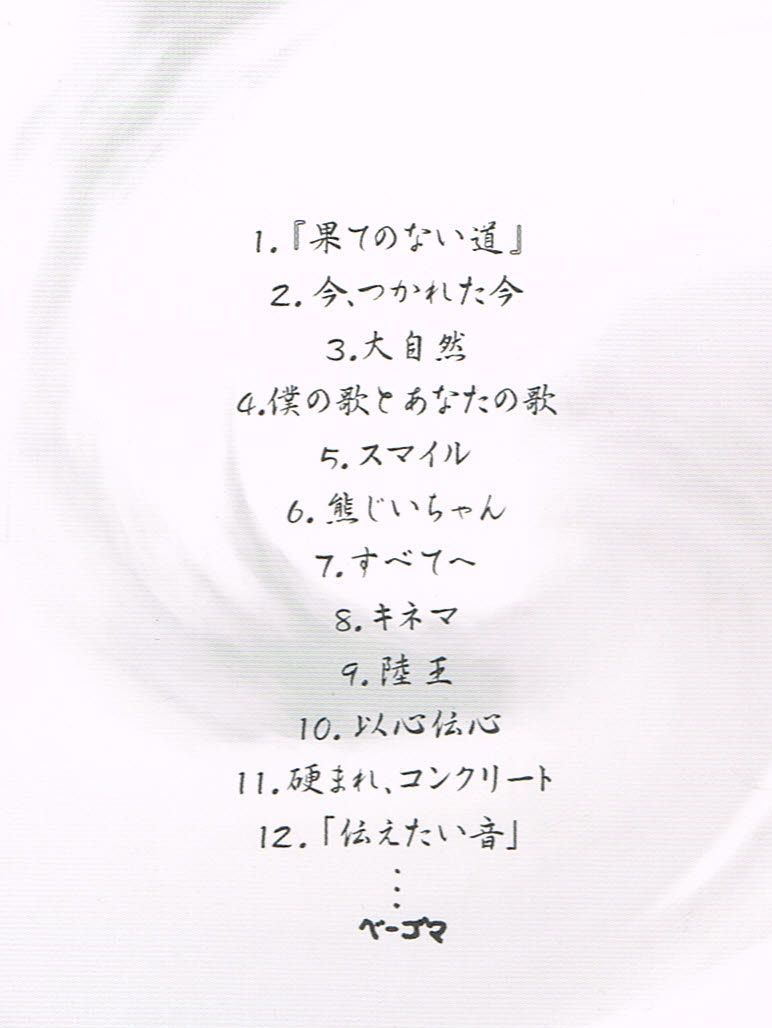 1.『果てのない道』
2.今、つかれた今
3.大自然
4.僕の歌とあなたの歌
5.スマイル
6.熊じいちゃん
7.すべてへ
8.キネマ
9.陸王
10.以心伝心
11.硬まれ、コンクリート
12.「伝えたい音」
⋮
ベーゴマ